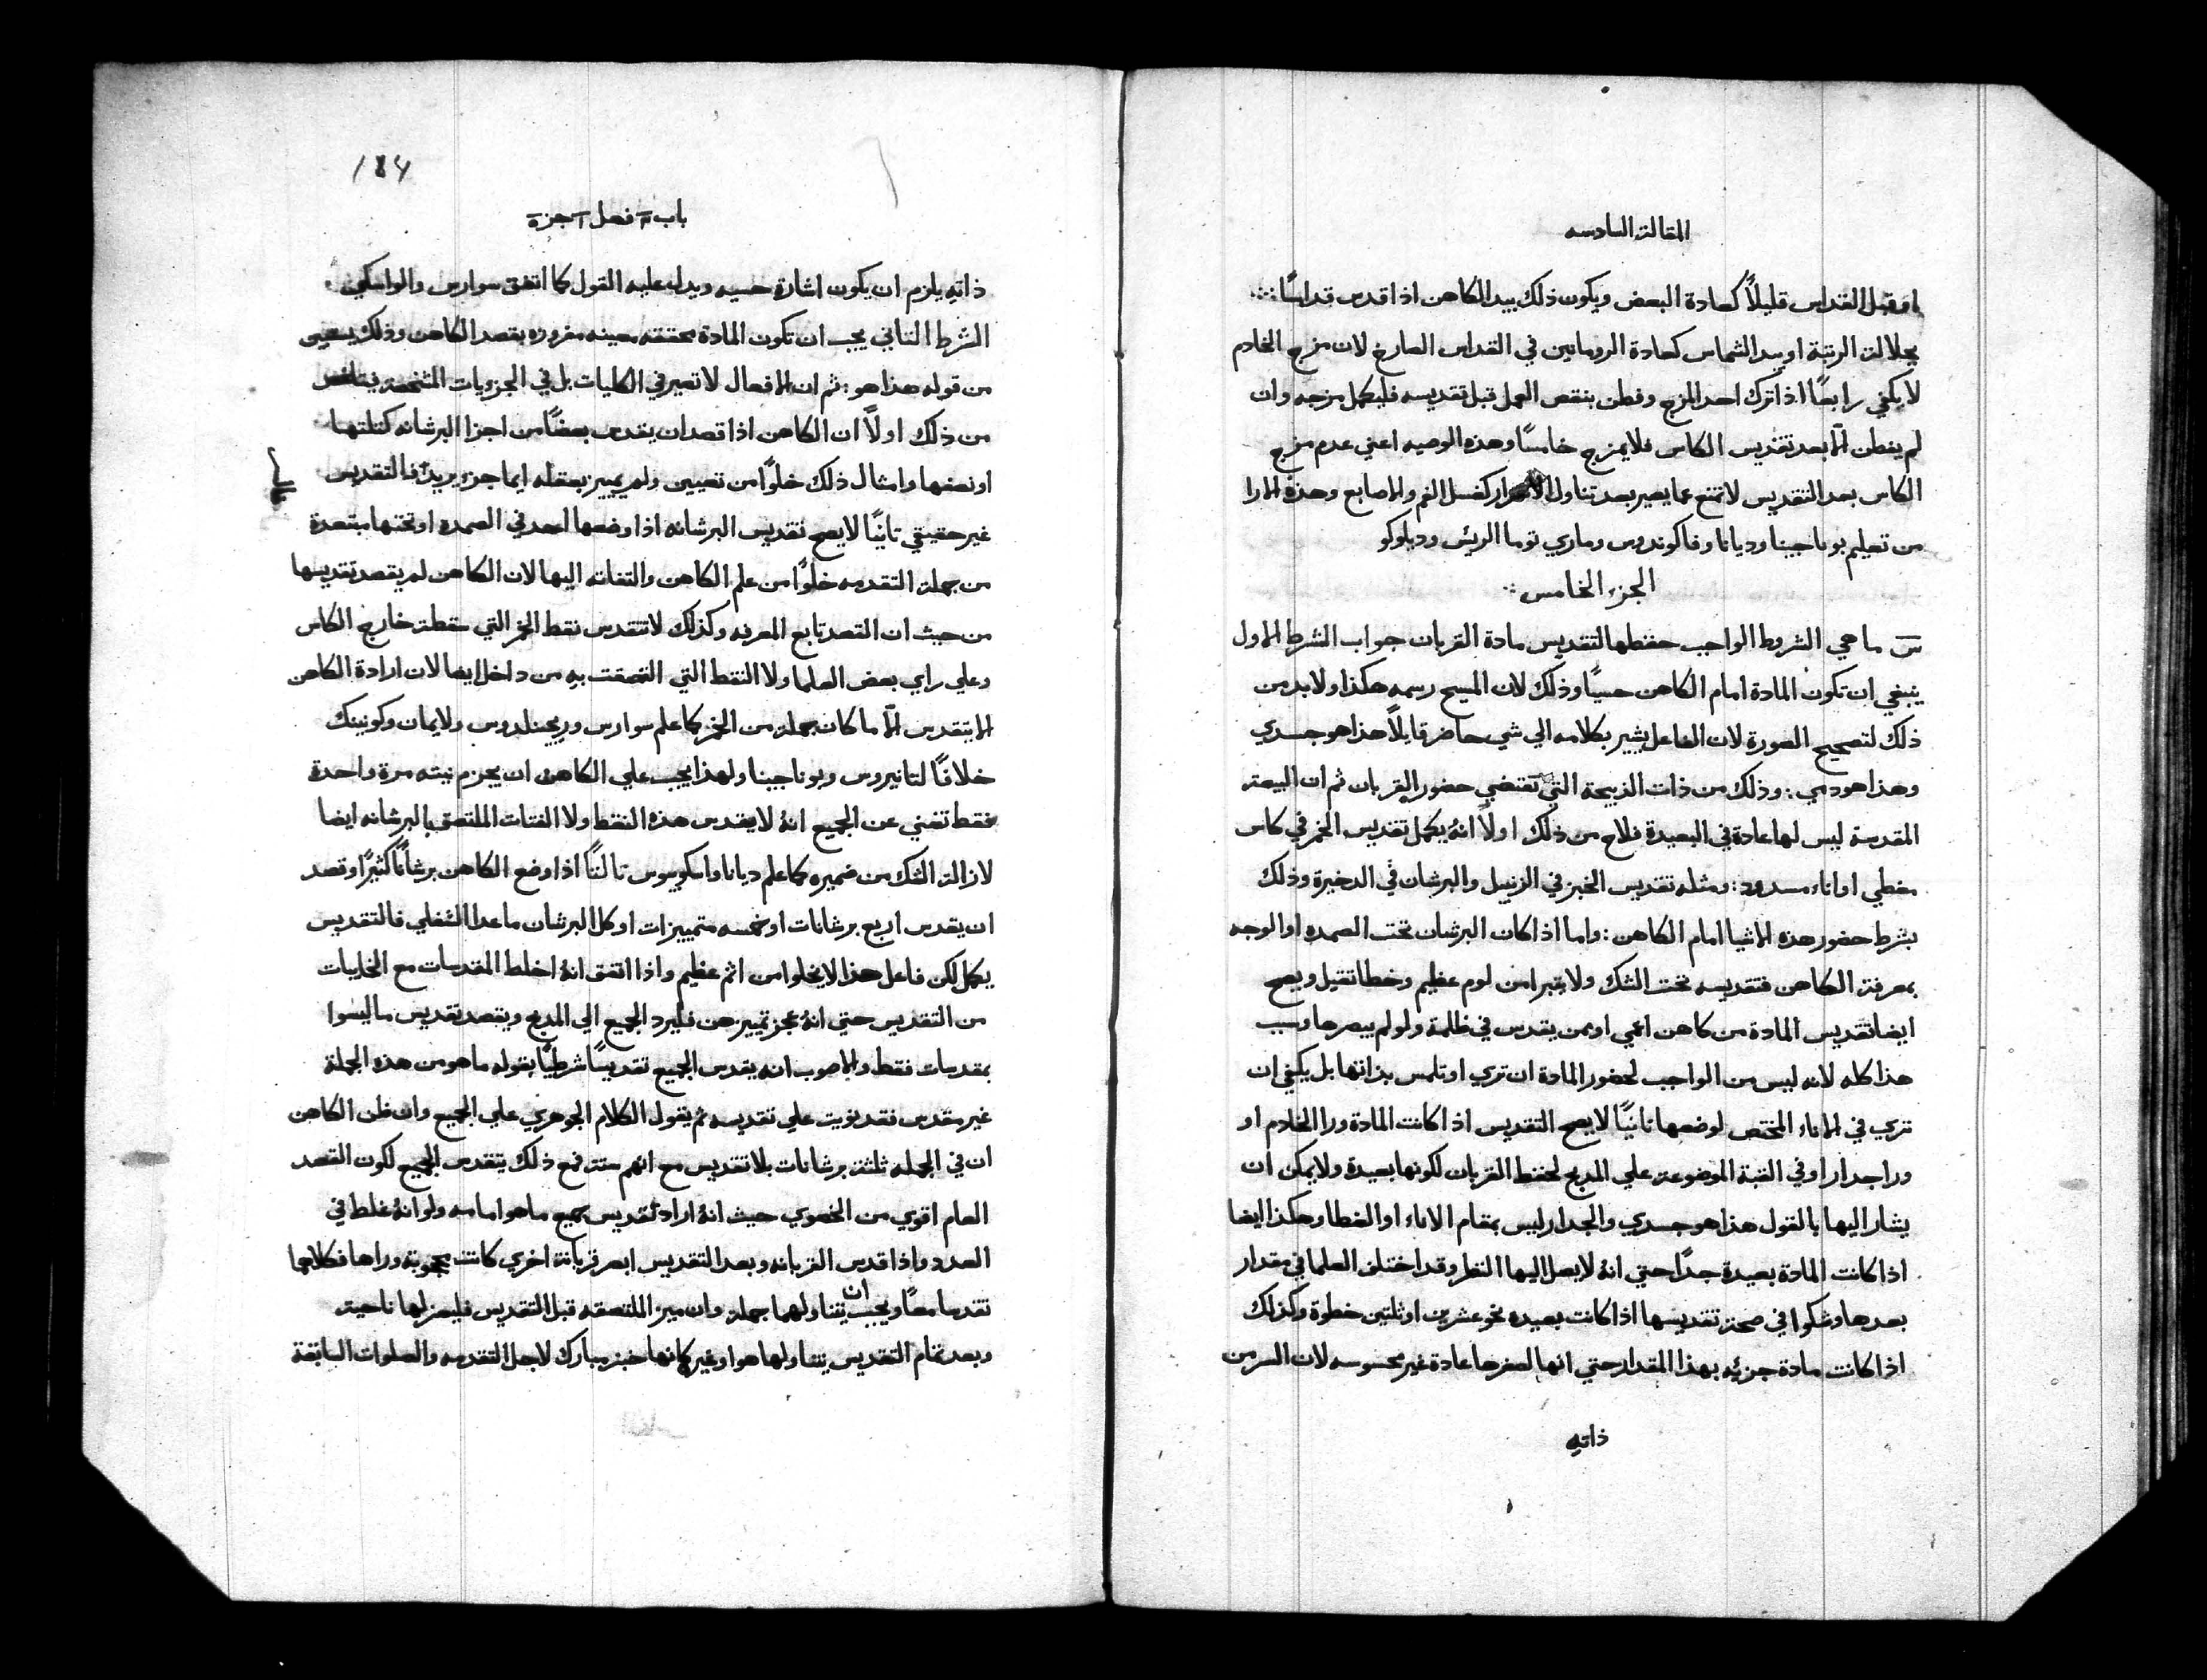 المقالة السادسه
او قبل القداس قليلاً كعادة البعض ويكون ذلك بيد الكاهن اذا قدس قداسًا
بجلالة الرتبة او بيد الشماس كعادة الرومانين في القداس الصارخ لان مزج الخادم
لا يكفي رابعًا اذا ترك احد المزج وفطن بنقص العمل قبل تقديسه فليكمل مزجه وان
لم يفطن الّا بعد تقديس الكاس فلا يمزج خامسًا وهذه الوصيه اعني عدم مزج
الكاس بعد التقديس لا تمنع عما يصير بعد تناول الاسرار كغسل الفم والاصابع وهذه الارا
من تعليم بوناجينا وديانا وفاكوندوس وماري توما الريس ودبلوكو
الجزء الخامس
س ما هي الشروط الواجب حفظها لتقديس مادة القربان جواب الشرط الاول
ينبغي ان تكون المادة امام الكاهن حسيًا وذلك لان المسيح رسمه هكذا ولا بد من
ذلك لتصحيح الصورة لان الفاعل يشير بكلامه الي شي حاضر قايلاً هذا هو جسدي
وهذا هو دمي : وذلك من ذات الذبيحة التي تقتضي حضور القربان ثم ان البيعة
المقدسة ليس لها عادة في البعيدة فلاح من ذلك اولاً انهُ يكمل تقديس الخمر في كاس
مغطي او اناء مسدود : ومثله تقديس الخبز في الزنبيل والبرشان في الدخيرة وذلك
بشرط حضور هذه الاشيا امام الكاهن : واما اذا كان البرشان تحت الصمده او الوجه
بمعرفة الكاهن فتقديسه تحت الشك ولا يتبرا من لوم عظيم وخطا ثقيل ويصح
ايضا تقديس المادة من كاهن اعمي او ممن يقدس في ظلمة ولو لم يبصرها وسبب
هذا كله لانه ليس من الواجب لحضور المادة ان تري او تلمس بذاتها بل يكفي ان
تري في الاناء المختص لوضعها ثانيًا لا يصح التقديس اذا كانت المادة ورا الخادم او
ورا جدار او في القبة الموضوعة علي المدبح لحفظ القربان لكونها بعيدة ولا يمكن ان
يشار اليها بالقول هذا هو جسدي والجدار ليس بمقام الاناء او الغطا وهكذا ايضا
اذا كانت المادة بعيدة جدًا حتي انهُ لا يصل اليها النظر وقد اختلف العلما في مقدار
بعدها وشكوا في صحة تقديسها اذا كانت بعيده نحو عشرين او ثلثين خطوة وكذلك
اذا كانت مادة جزئيه بهذا المقدار حتي انها لصغرها عادة غير محسوسه لان السر من
ذاتهِ
184
باب ٣ فصل ١ جزء ٥
ذاتهِ يلزم ان يكون اشارة حسيه ويدل عليه القول كما اتفق سوارس والواسكي
الشرط الثاني يجب ان تكون المادة محققه معينه مفروزه بقصد الكاهن وذلك
من قوله هذا هو : ثم ان الافعال لا تصير في الكليات بل في الجزويات المشخصة
من ذلك اولاً ان الكاهن اذا قصد ان يقدس بعضًا من اجزا البرشانه كثلثها
او نصفها وامثال ذلك خلوًا من تعيين ولم يميز بعقله ايما جزء يريد فالتقديس
غير حقيقي ثانيًا لا يصح تقديس البرشانه اذا وضعها احد في الصمده او تحتها مبتعدة
من جملة التقدمه خلوًا من علم الكاهن والتفاته اليها لان الكاهن لم يقصد تقديسها
من حيث ان القصد تابع المعرفه وكذلك لا تتقدس نقط الخمر التي سقطت خارج الكاس
وعلي راي بعض العلما ولا النقط التي التصقت بهِ من داخل ايضا لان ارادة الكاهن
الا يتقدس الّا ما كان جملة من الخمر كما علم سوارس وريجنلدوس ولايمان وكونينك
خلافًا لتانيروس وبوناجينا ولهذا يجب علي الكاهن ان يجزم نيته مرة واحدة
فقط تغني عن الجميع انهُ لا يقدس هذه النقط ولا الفتات الملتصق بالبرشانه ايضا
لازالة الشك من ضميره كما علم ديانا واسكوبوس ثالثًا اذا وضع الكاهن برشانًا كثيرًا وقصد
ان يقدس اربع برشانات او خمسه متمييزات او كل البرشان ما عدا الشفلي فالتقديس
يكمل لكن فاعل هذا لا يخلوا من اثم عظيم واذا اتفق انهُ اخلط المقدسات مع الخاليات
من التقديس حتي انهُ عجز تمييزهن فليرد الجميع الي المدبح ويقصد تقديس ما ليسوا
بمقدسات فقط والاصوب انه يقدس الجميع تقديسًا شرطيًا بقوله ما هو من هذه الجملة
غير مقدس فقد نويت علي تقديسه ثم يقول الكلام الجوهري علي الجميع وان ظن الكاهن
ان في الجمله ثلثة برشانات بلا تقديس مع انهم ستة فمع ذلك يتقدس الجميع لكون القصد
العام اقوي من الخصوي حيث انهُ اراد تقديس جميع ما هو امامه ولو انهُ غلط في
العدد واذا قدس القربانه وبعد التقديس ابصر قربانة اخري كانت محجوبة وراها فكلاهما
تقدسا معًا ويجب ان يتناولهما جملة وان ميز الملتصقه قبل التقديس فليعزلها ناحية
وبعد تمام التقديس يتناولها هوا وغيره كانها خبز مبارك لاجل التقدمه والصلوات السابقة